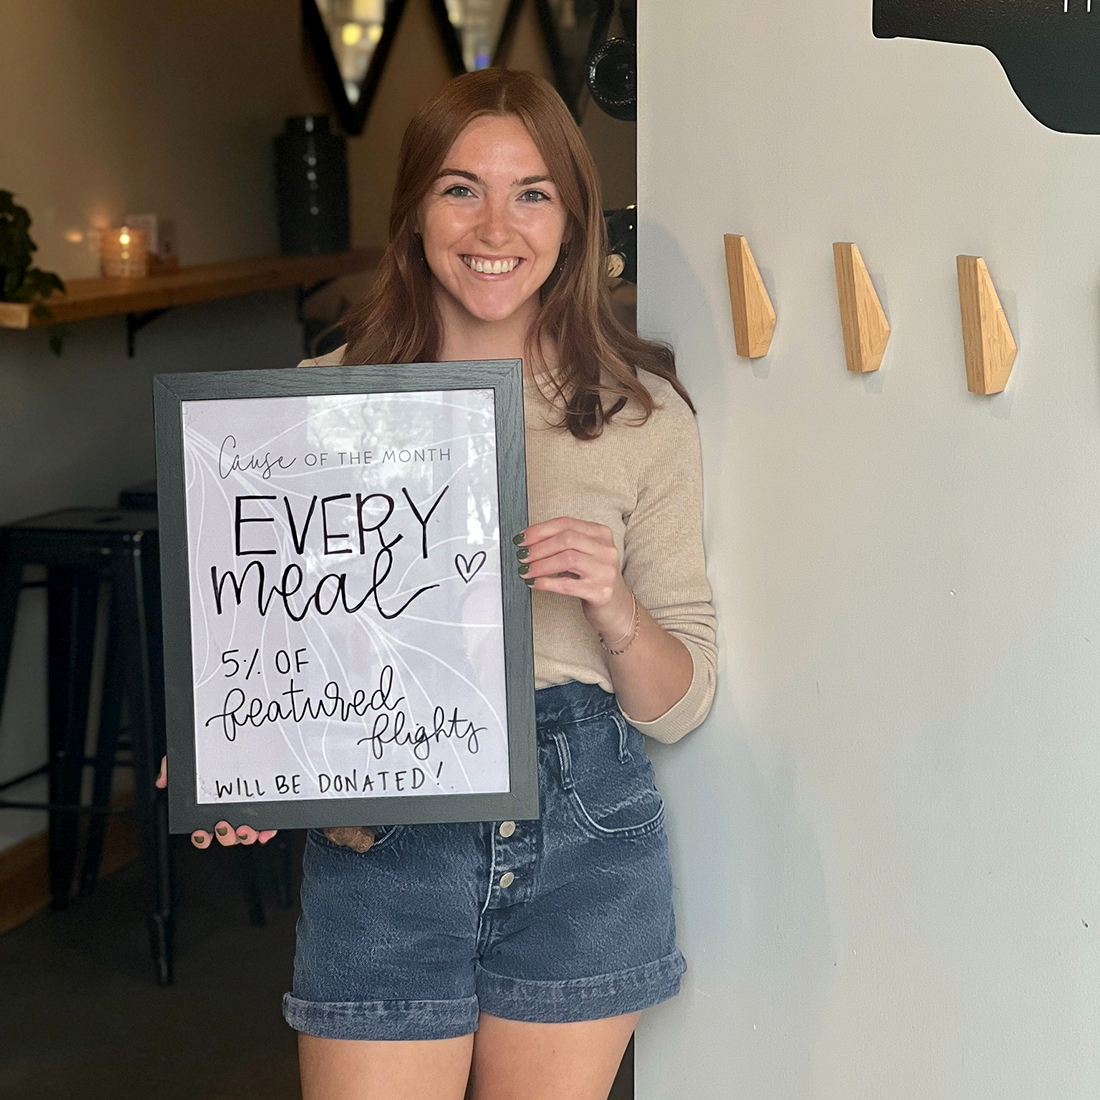 Cause OF THE MONTH
EVERY
meal
5% OF
featured
flights
WILL BE DONATED!